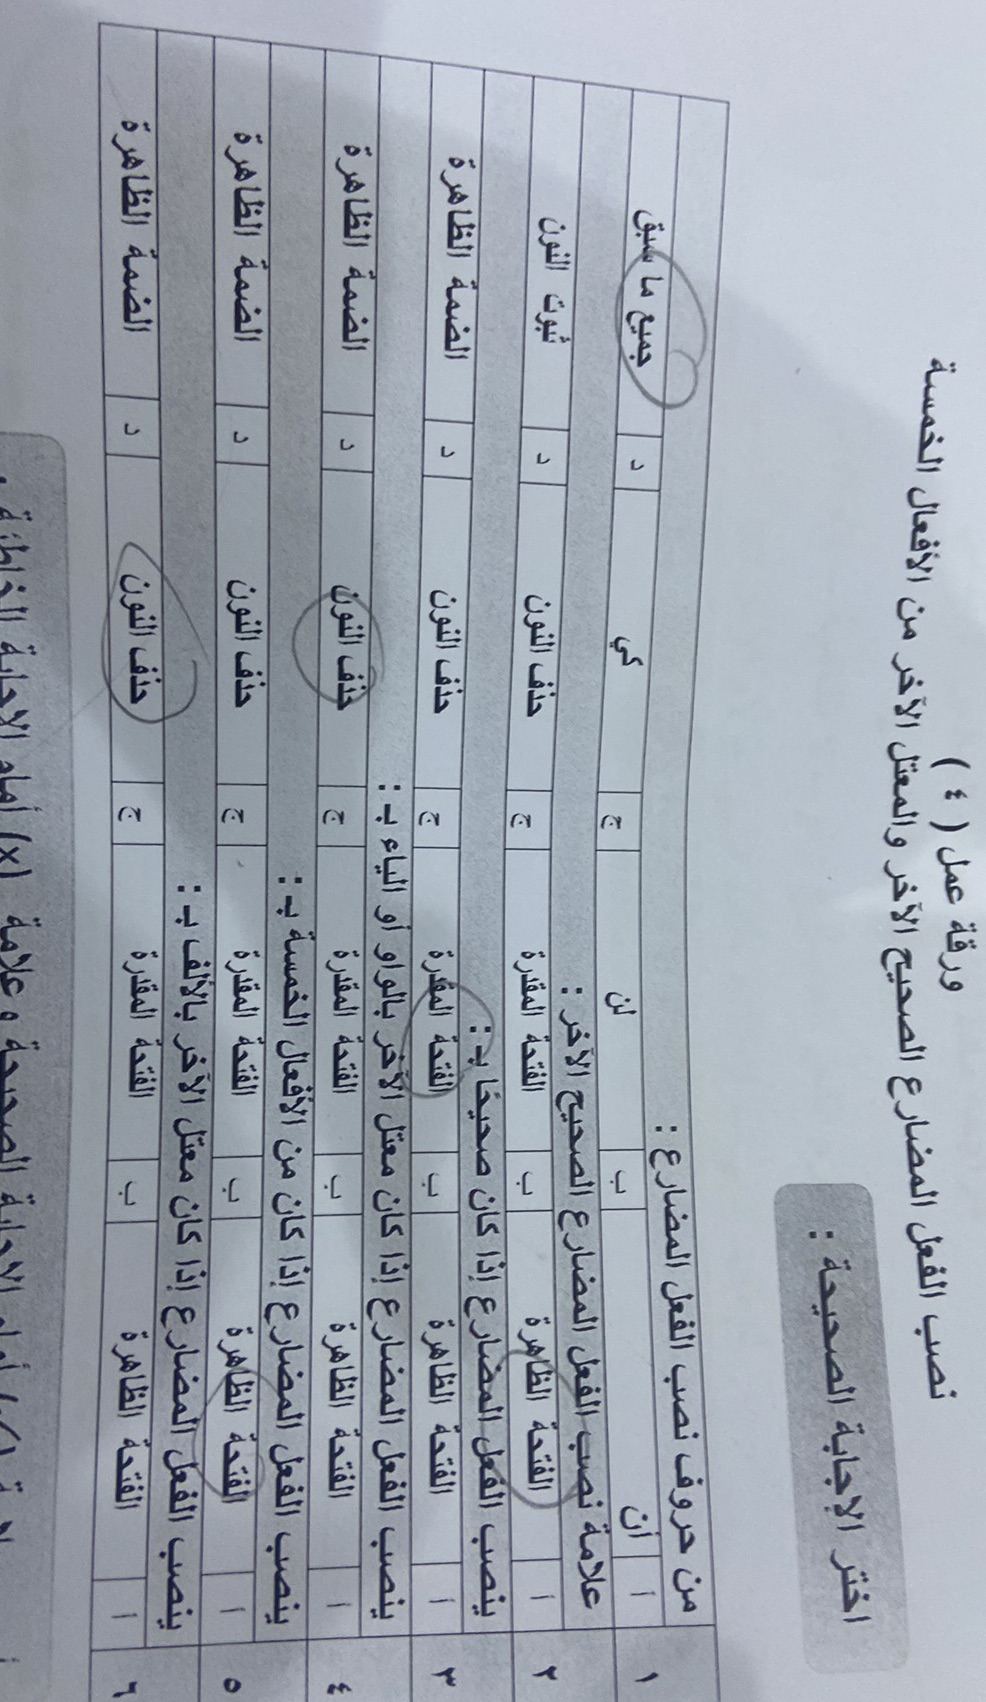 ورقة عمل ( ٤ )
نصب الفعل المضارع الصحيح الآخر والمعتل الآخر من الأفعال الخمسة
اختر الإجابة الصحيحة :
١ من حروف نصب الفعل المضارع :
أ أن ب لن ج كي د جميع ما سبق
٢ علامة نصب الفعل المضارع الصحيح الآخر :
أ الفتحة الظاهرة ب الفتحة المقدرة ج حذف النون د ثبوت النون
٣ ينصب الفعل المضارع إذا كان صحيحًا بـ :
أ الفتحة الظاهرة ب الفتحة المقدرة ج حذف النون د الضمة الظاهرة
٤ ينصب الفعل المضارع إذا كان معتل الآخر بالواو أو الياء بـ :
أ الفتحة الظاهرة ب الفتحة المقدرة ج حذف النون د الضمة الظاهرة
٥ ينصب الفعل المضارع إذا كان من الأفعال الخمسة بـ :
أ الفتحة الظاهرة ب الفتحة المقدرة ج حذف النون د الضمة الظاهرة
٦ ينصب الفعل المضارع إذا كان معتل الآخر بالألف بـ :
أ الفتحة الظاهرة ب الفتحة المقدرة ج حذف النون د الضمة الظاهرة
أمام الإجابة الصحيحة وعلامة (x) أمام الإجابة الخاطئة